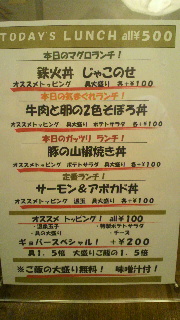 TODAY'S LUNCH all¥500
本日のマグロランチ!
鉄火丼 じゃこのせ
オススメトッピング 具大盛り 各+¥100
本日の気まぐれランチ!
牛肉と卵の2色そぼろ丼
オススメトッピング 具大盛り ポテトサラダ 各+¥100
本日のガッツリ ランチ!
豚の山椒焼き丼
オススメトッピング ポテトサラダ 具大盛り 各+¥100
定番ランチ!
サーモン&アボカド丼
オススメトッピング 温玉 具大盛り 各+¥100
オススメ トッピング! all¥100
・温泉玉子 ・特製ポテトサラダ
・具の大盛り ・チーズ
ギョバースペシャル! +¥200
具1.5倍 大盛りご飯1.5倍
※ご飯の大盛り無料! 味噌汁付!